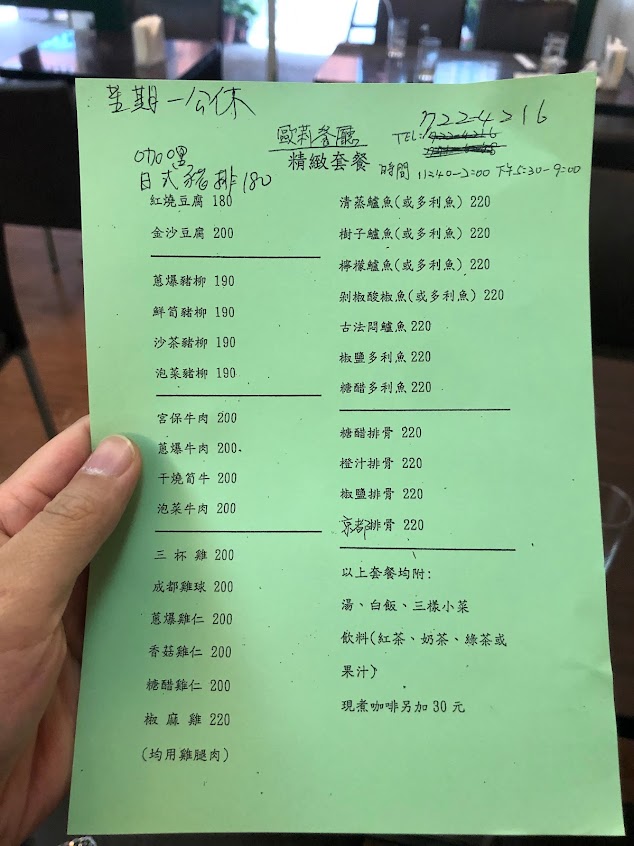 星期一公休
722-4216
歐莉餐廳
TEL:
精緻套餐
時間 11:40-2:00 下午5:30-9:00
咖哩
日式豬排180
紅燒豆腐 180
金沙豆腐 200
蔥爆豬柳 190
鮮筍豬柳 190
沙茶豬柳 190
泡菜豬柳 190
宮保牛肉 200
蔥爆牛肉 200.
干燒筍牛 200
泡菜牛肉 200
三杯雞 200
成都雞球 200
蔥爆雞仁 200
香菇雞仁 200
糖醋雞仁 200
椒麻雞 220
(均用雞腿肉)
清蒸鱸魚(或多利魚) 220
樹子鱸魚(或多利魚) 220
檸檬鱸魚(或多利魚) 220
剁椒酸椒魚(或多利魚) 220
古法悶鱸魚 220
椒鹽多利魚 220
糖醋多利魚 220
糖醋排骨 220
橙汁排骨 220
椒鹽排骨 220
京都排骨 220
以上套餐均附:
湯、白飯、三樣小菜
飲料(紅茶、奶茶、綠茶或
果汁)
現煮咖啡另加 30 元